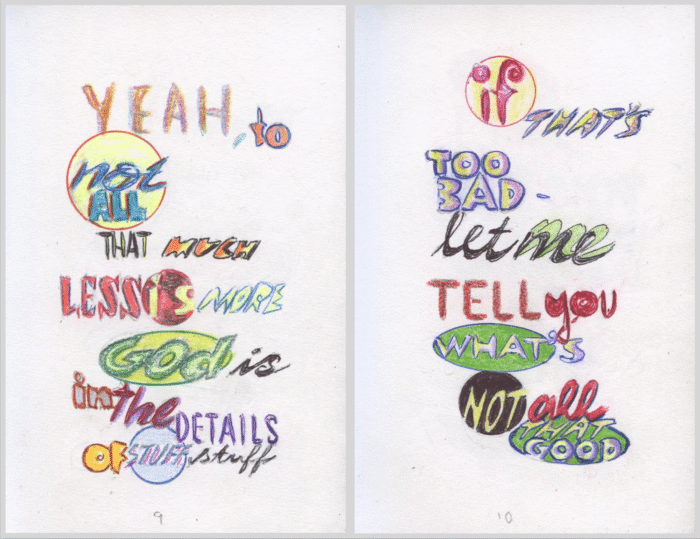 YEAH, to
not
ALL
THAT MUCH
LESS is MORE
GOD is
in the DETAILS
OF STUFF stuff
9
if
THAT'S
TOO
BAD -
let me
TELL you
WHAT'S
NOT all
THAT
GOOD
10